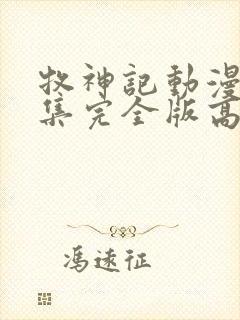 牧神記動漫
集完全版高
馮遠征